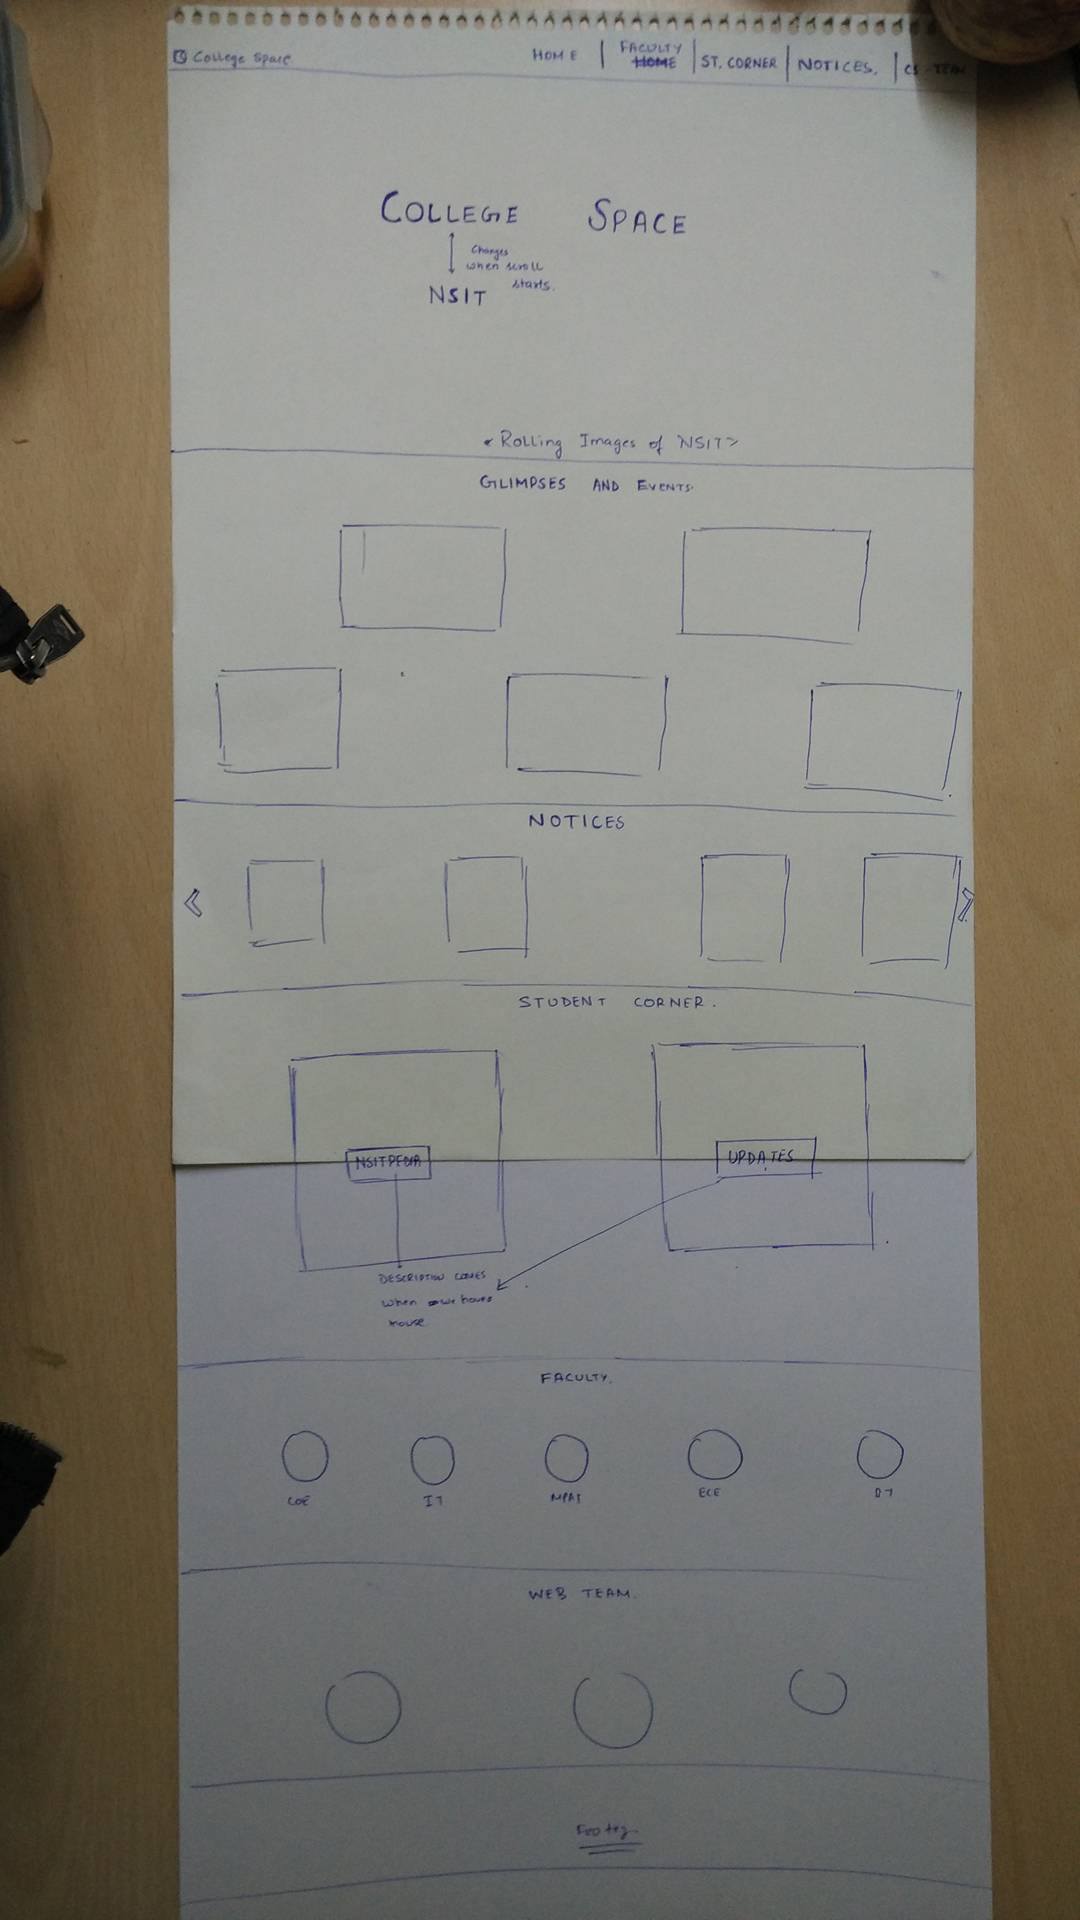 College Space
HOME
FACULTY
HOME
ST. CORNER
NOTICES.
CS-TEAM
COLLEGE SPACE
Changes
when scroll
starts.
NSIT
< Rolling Images of NSIT>
GLIMPSES AND EVENTS
NOTICES
STUDENT CORNER.
NSITPEDIA
UPDATES
DESCRIPTION COMES
when we hover
mouse
FACULTY.
COE
IT
MPAE
ECE
BT
WEB TEAM.
Footer